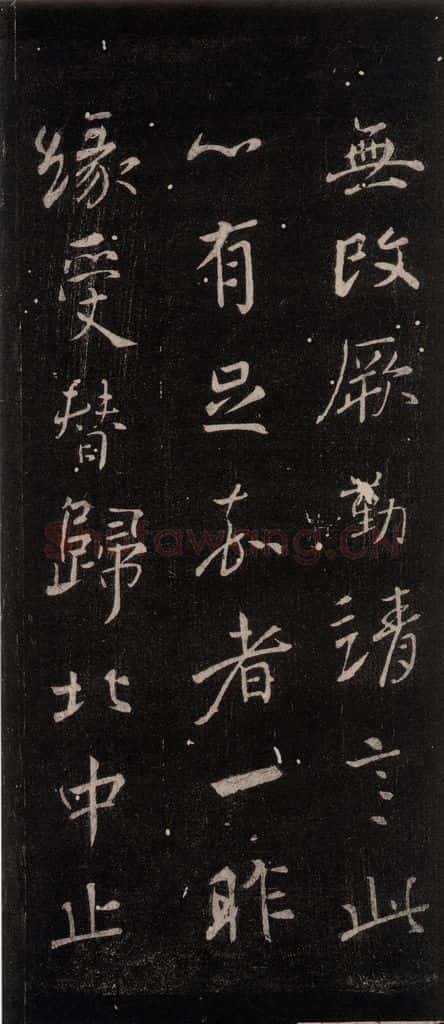 無改厥勤請言此
心有足嘉者一昨
緣受替歸北中止
Shufawang.CN